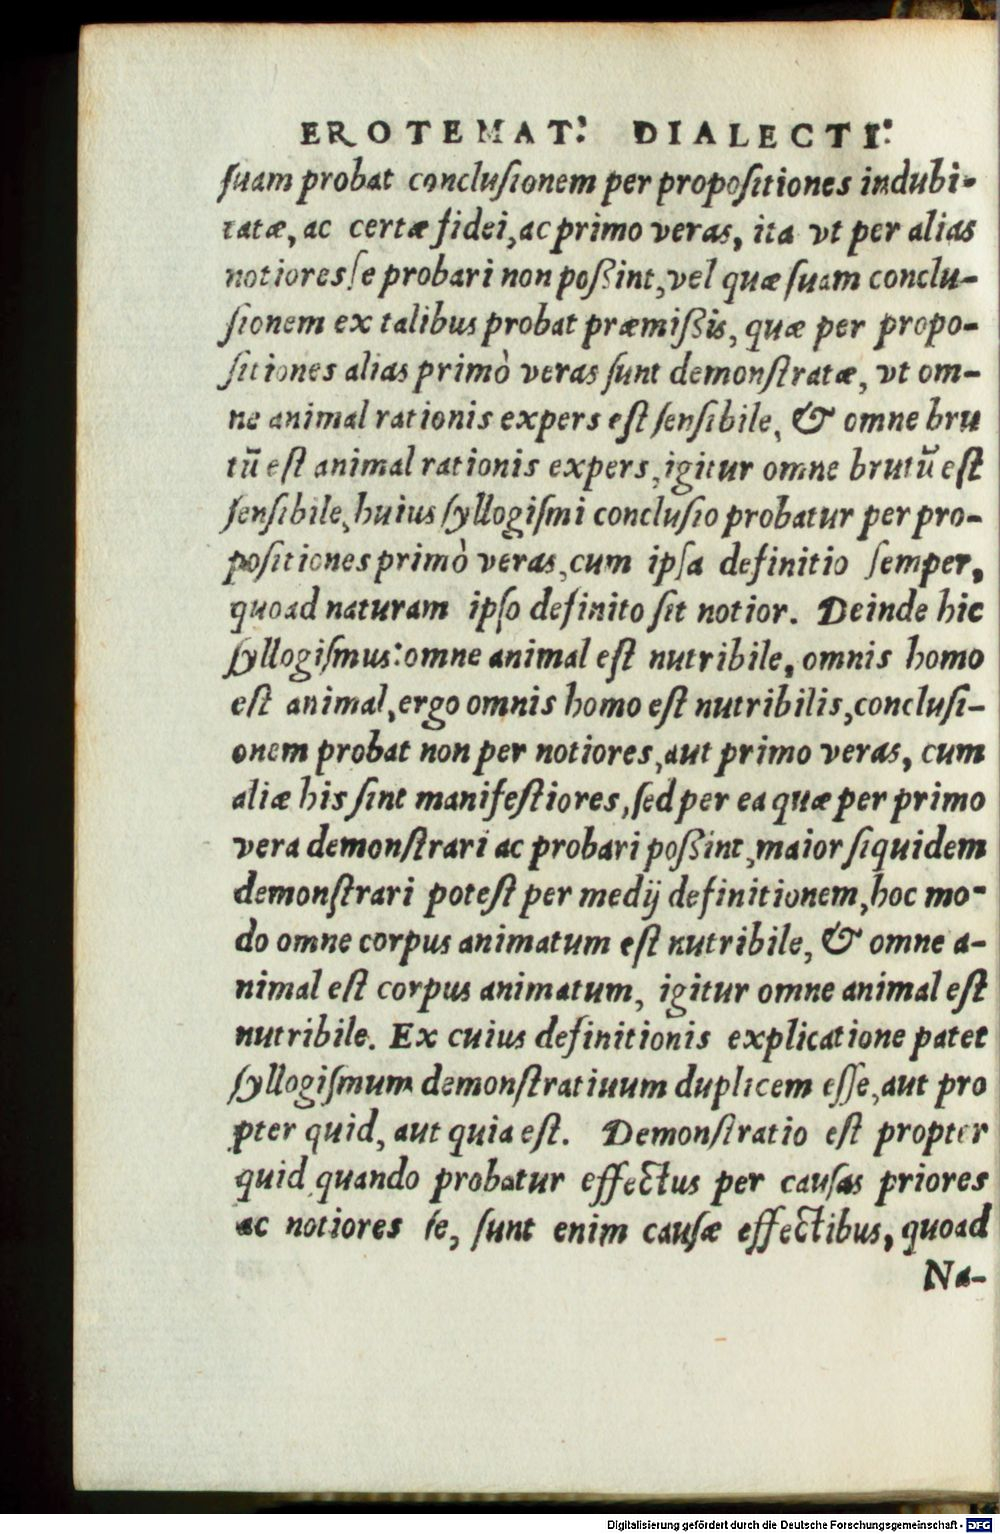 EROTEMAT: DIALECTI:
ſuam probat concluſionem per propoſitiones indubi-
tatæ, ac certæ fidei, ac primo veras, ita vt per alias
notiores ſe probari non poßint, vel quæ ſuam conclu-
ſionem ex talibus probat præmißis, quæ per propo-
ſitiones alias primò veras ſunt demonſtratæ, vt om-
ne animal rationis expers eſt ſenſibile, & omne bru
tū eſt animal rationis expers, igitur omne brutū eſt
ſenſibile, huius ſyllogiſmi concluſio probatur per pro-
poſitiones primò veras, cum ipſa definitio ſemper,
quoad naturam ipſo definito ſit notior. Deinde hic
ſyllogiſmus: omne animal eſt nutribile, omnis homo
eſt animal, ergo omnis homo eſt nutribilis, concluſi-
onem probat non per notiores, aut primo veras, cum
aliæ his ſint manifeſtiores, ſed per ea quæ per primo
vera demonſtrari ac probari poßint, maior ſiquidem
demonſtrari poteſt per medij definitionem, hoc mo-
do omne corpus animatum eſt nutribile, & omne a-
nimal eſt corpus animatum, igitur omne animal eſt
nutribile. Ex cuius definitionis explicatione patet
ſyllogiſmum demonſtratiuum duplicem eſſe, aut pro
pter quid, aut quia eſt. Demonſtratio eſt propter
quid, quando probatur effectus per cauſas priores
ac notiores ſe, ſunt enim cauſæ effectibus, quoad
Na-
Digitalisierung gefördert durch die Deutsche Forschungsgemeinschaft - DFG